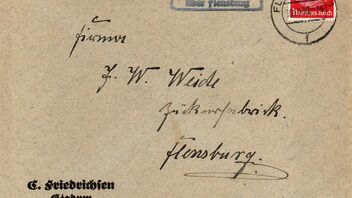 über Flensburg
FL
Deutsches Reich
f
Firma
J. W. Weide
Zuckerfabrik.
Flensburg.
C. Friedrichsen
Stadum